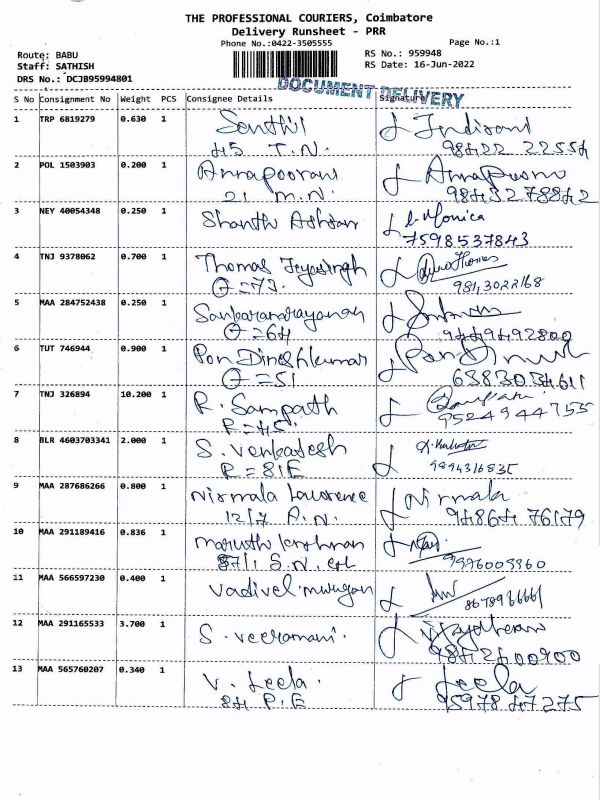 THE PROFESSIONAL COURIERS, Coimbatore
Delivery Runsheet - PRR
Phone No.:0422-3505555 Page No.:1
Route: BABU RS No.: 959948
Staff: SATHISH RS Date: 16-Jun-2022
DRS No.: DCJB95994801
DOCUMENT DELIVERY
S No Consignment No Weight PCS Consignee Details Signature
1 TRP 6819279 0.630 1 Senthil Indirani
45 T.N. 98422 22554
2 POL 1503903 0.200 1 Annapoorani
21 M.N. 9843278842
3 NEY 40054348 0.250 1 Shanthi Monica
7598537843
4 TNJ 9378062 0.700 1 Thomas Jeyasingh Thomas
Q=73. 9843022168
5 MAA 284752438 0.250 1 Sankaranarayanan
Q=64 9449492800
6 TUT 746944 0.900 1 Pon Dineshkumar
Q=51 6383034611
7 TNJ 326894 10.200 1 R. Sampath
R=45. 9524944755
8 BLR 4603703341 2.000 1 S. Venkatesh
R=81E 9994316835
9 MAA 287686266 0.800 1 Nirmala Lawrence Nirmala
12/7 A.N. 9864 76179
10 MAA 291189416 0.836 1
87/1 S.N.
11 MAA 566597230 0.400 1 Vadivel murugan
12 MAA 291165533 3.700 1 S. Veeramani.
9842400900
13 MAA 565760207 0.340 1 V. Leela. Leela
84 P.E 95978 47275